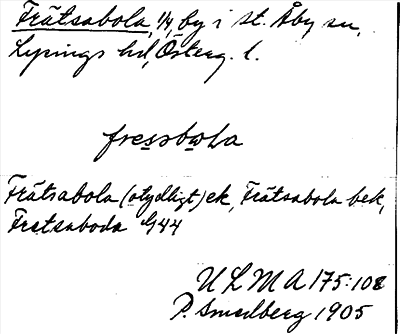 Frätsabola, 1/4, by i St. Åby sn,
Lysings hd, Österg. l.
fressbola
Frätsabola (otydligt) ek, Frätsabola bek,
Fretsaboda G44
ULMA 175:108
P. Smedberg 1905